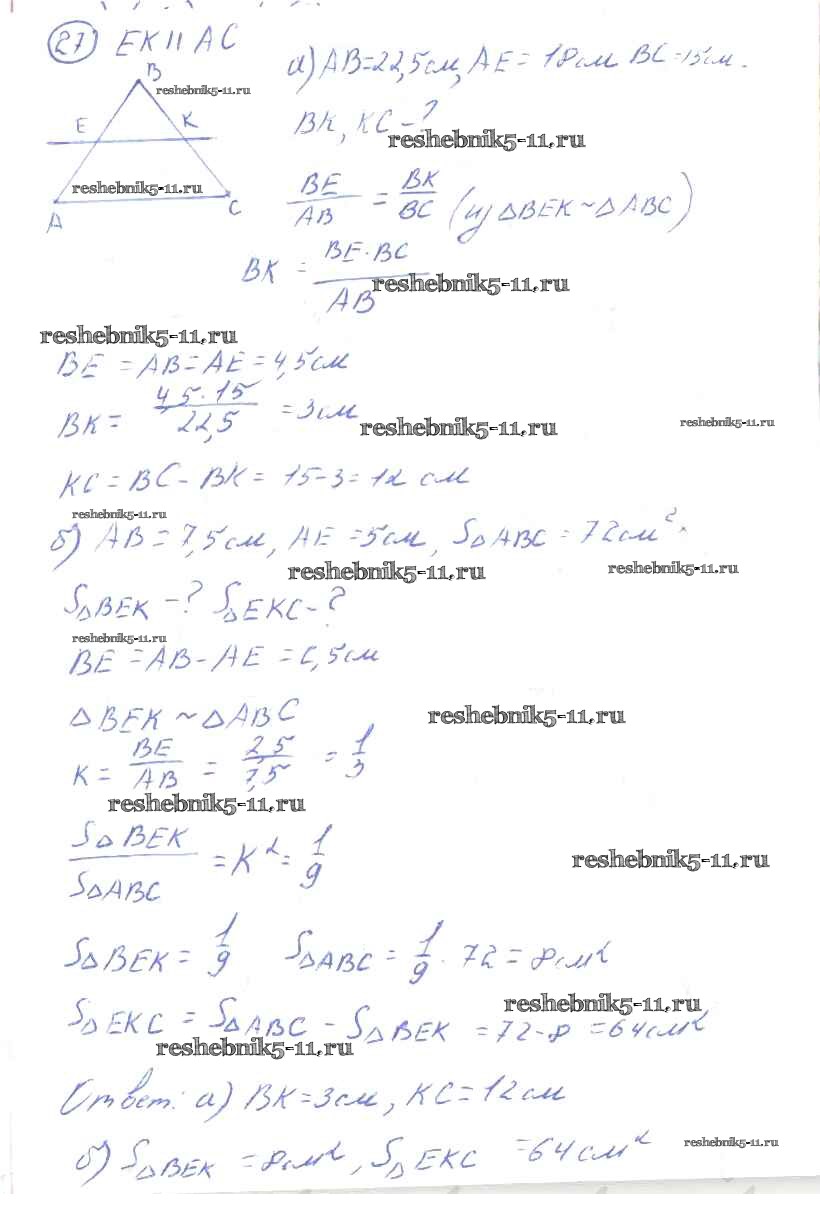 27) EK || AC
B
reshebnik5-11.ru
а) AB = 22,5 см, AE = 18 см BC = 15 см.
E K
BK, KC - ?
reshebnik5-11.ru
reshebnik5-11.ru
A C
BE/AB = BK/BC (из △BEK ~ △ABC)
BK = BE·BC/AB
reshebnik5-11.ru
reshebnik5-11.ru
BE = AB = AE = 4,5 см
BK = 4,5·15/22,5 = 3 см
reshebnik5-11.ru
reshebnik5-11.ru
KC = BC - BK = 15-3 = 12 см
reshebnik5-11.ru
б) AB = 7,5 см, AE = 5 см, S△ABC = 72 см².
reshebnik5-11.ru
reshebnik5-11.ru
S△BEK - ? S△EKC - ?
reshebnik5-11.ru
BE = AB - AE = 2,5 см
△BEK ~ △ABC
reshebnik5-11.ru
K = BE/AB = 2,5/7,5 = 1/3
reshebnik5-11.ru
S△BEK/S△ABC = K² = 1/9
reshebnik5-11.ru
S△BEK = 1/9 S△ABC = 1/9 · 72 = 8 см²
reshebnik5-11.ru
S△EKC = S△ABC - S△BEK = 72-8 = 64 см²
reshebnik5-11.ru
Ответ: а) BK = 3 см, KC = 12 см
б) S△BEK = 8 см², S△EKC = 64 см²
reshebnik5-11.ru